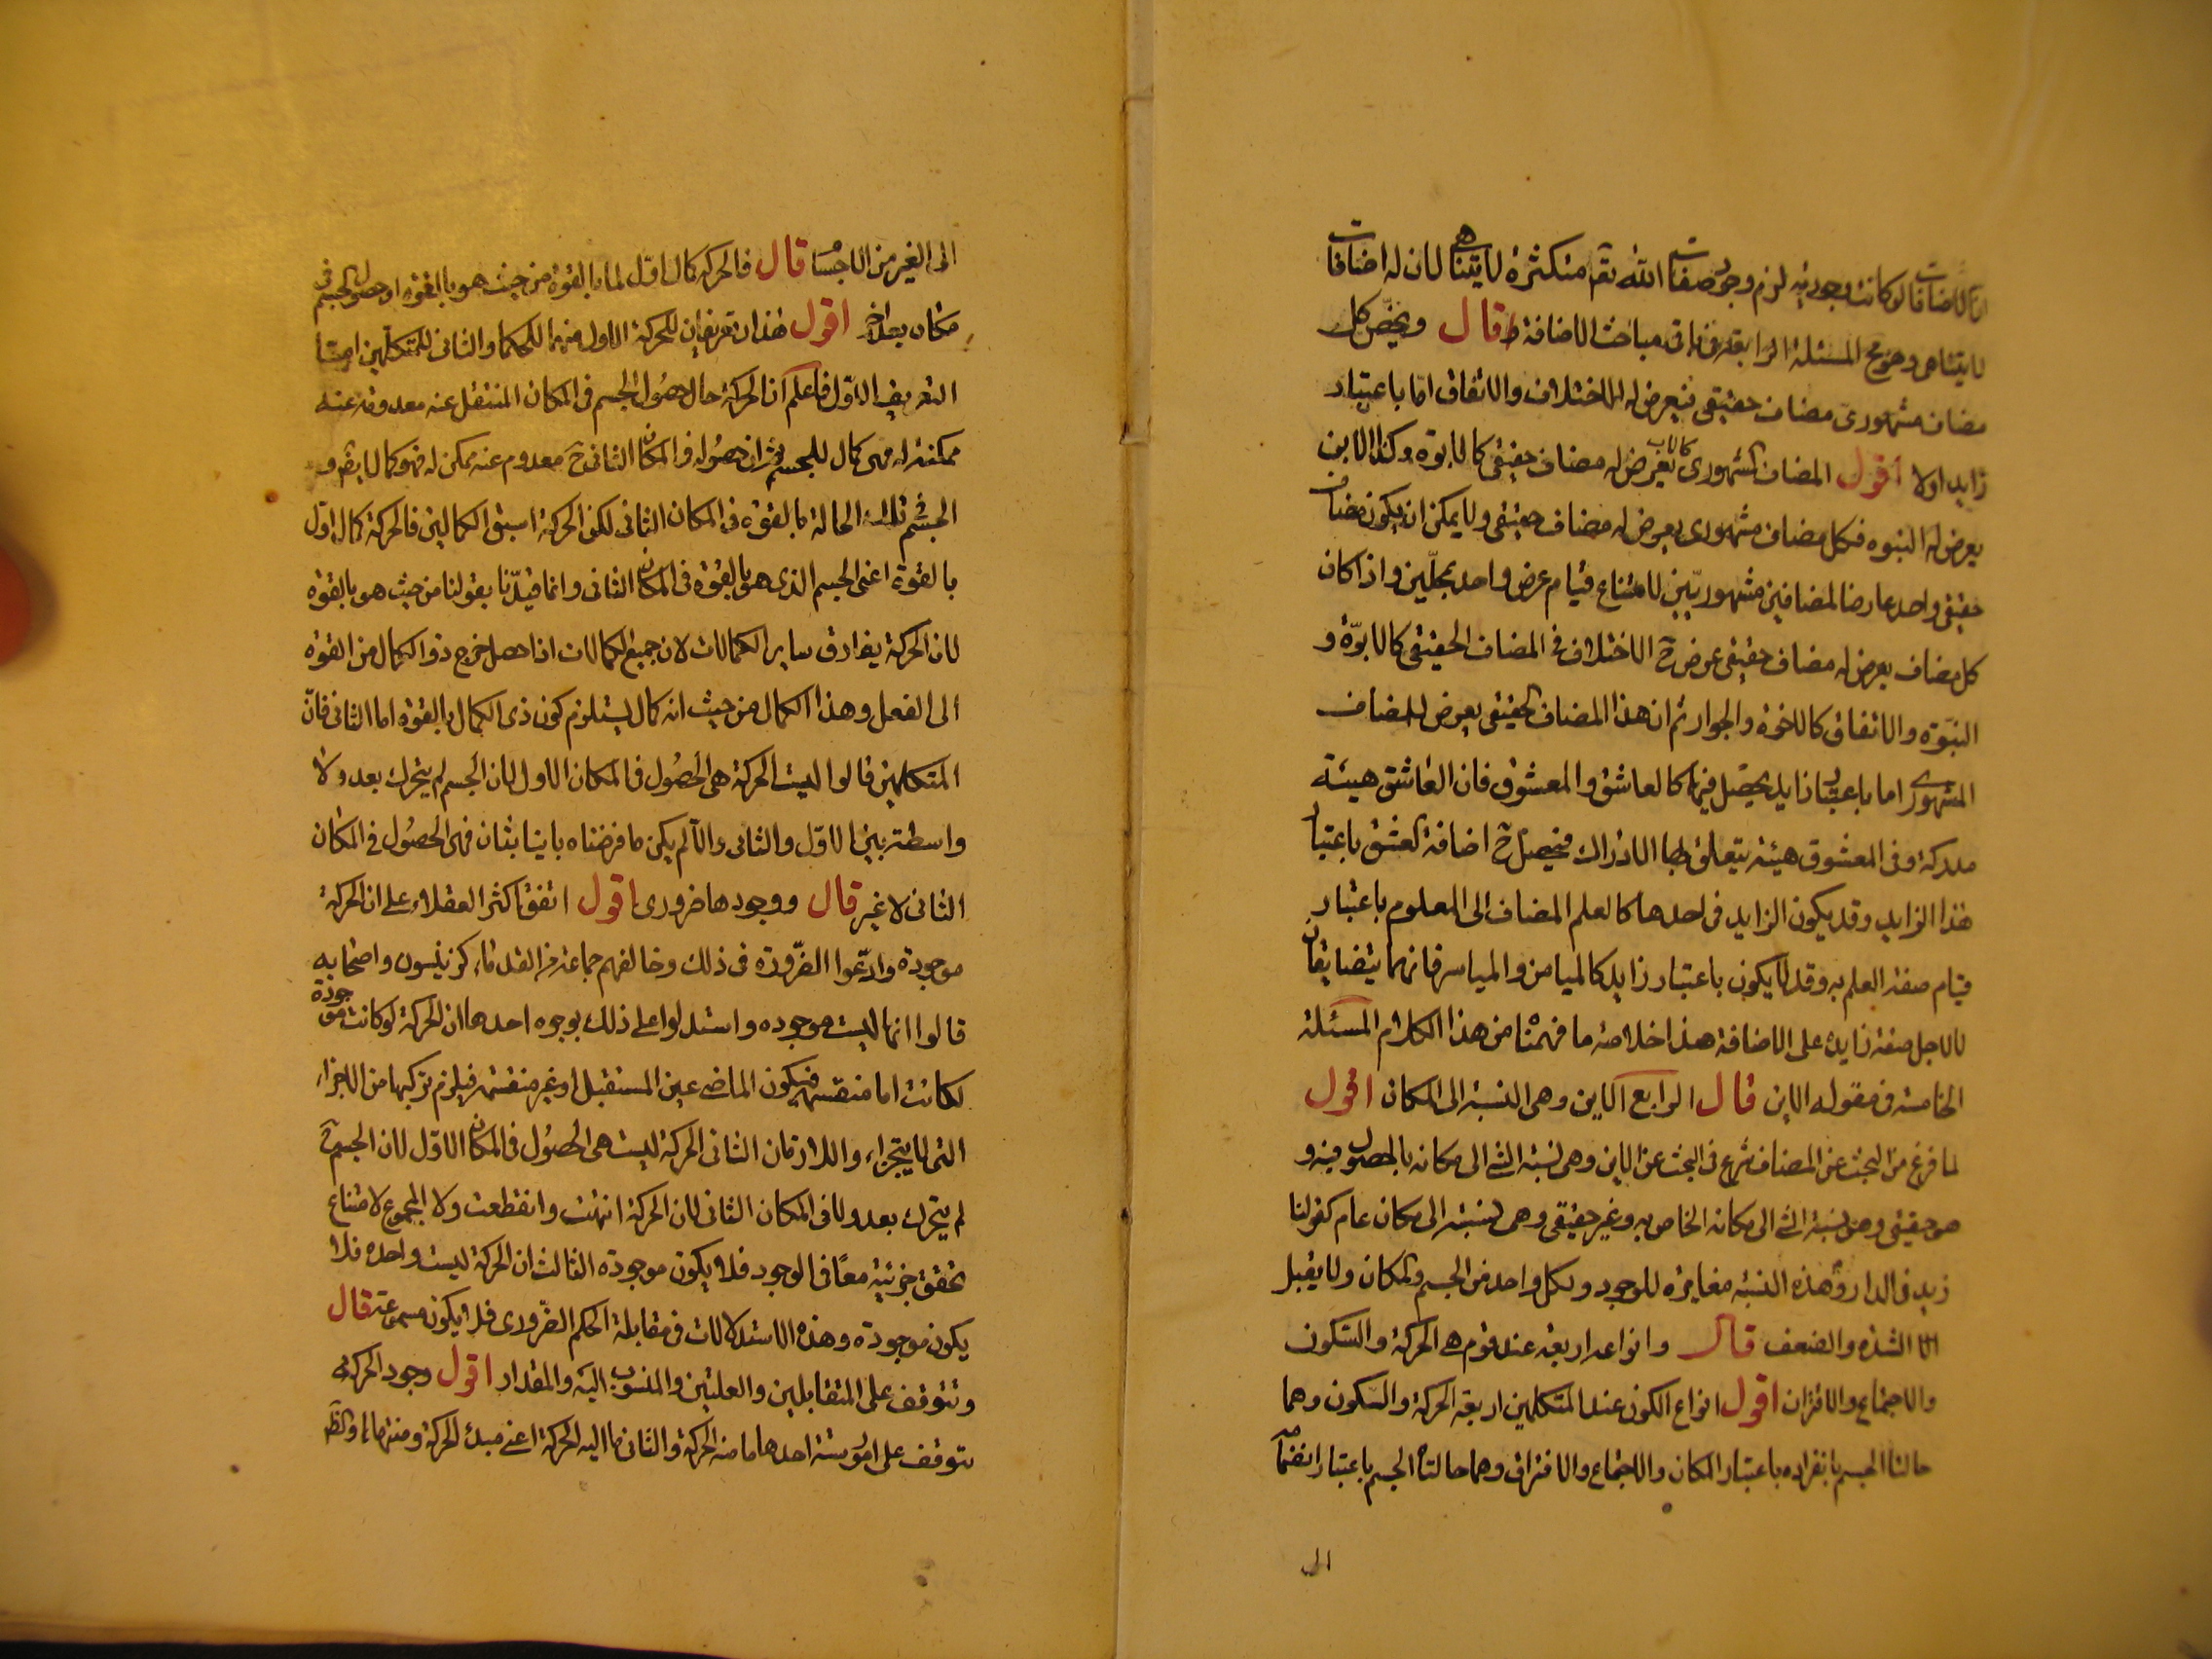 ان الاضافات لو كانت وجودية لزم وجود صفات الله تعم متكثرة لا يتناهى لان له اضافات
لا يتناهى وضح المسئلة الرابعة فى باقى مباحث الاضافة ط قال ويخص كل
مضاف مشهورى مضاف حقيقى فيعرض له الاختلاف والاتفاق اما باعتبار
زايد او لا اقول المضاف المشهورى كالاب يعرض له مضاف حقيقى كالابوة وكذا الابن
يعرض له البنوه فكل مضاف مشهورى يعرض له مضاف حقيقى ولا يمكن ان يكون مضاف
حقيقى واحد عارضا لمضافين مشهوريين لامتناع قيام عرض واحد بمحلين واذا كان
كل مضاف يعرض له مضاف حقيقى عرض ح الاختلاف فى المضاف الحقيقى كالابوة و
البنوة والاتفاق كالاخوة والجوار ثم ان هذا المضاف الحقيقى يعرض للمضاف
المشهورى اما باعتبار زايد يحصل فيهما كالعاشق والمعشوق فان العاشق هيئة
مدركة وفى المعشوق هيئة يتعلق بها الادراك فيحصل ح اضافة العشق باعتبار
هذا الزايد وقد يكون الزايد فى احدهما كالعلم المضاف الى المعلوم باعتبار
قيام صفة العلم به وقد لا يكون باعتبار زايد كالميامن والمياسر فانهما يتضايفان
لا لاجل صفة زايدة على الاضافة هذا خلاصة ما فهمنا من هذا الكلام المسئلة
الخامسة فى مقولة الاين قال الرابع الاين وهى النسبة الى المكان اقول
لما فرغ من البحث عن المضاف شرع فى البحث عن الاين وهى نسبة الشئ الى مكانه بالحصول فيه و
هو حقيقى وهى نسبة الشئ الى مكانه الخاص به وغير حقيقى وهى نسبته الى مكان عام كقولنا
زيد فى الدار وهذه النسبة مغايرة للوجود ولكل واحد من الجسم والمكان ولا يقبل
الشدة والضعف قال وانواعه اربعة عند قوم هى الحركة والسكون
والاجتماع والافتراق اقول انواع الكون عند المتكلمين اربعة الحركة والسكون وهما
حالتا الجسم بانفراده باعتبار المكان والاجتماع والافتراق وهما حالتا الجسم باعتبار انضمامه
الى
الى الغير من الاجسام قال فالحركة كمال اول لما بالقوة من حيث هو بالقوة او حصول الجسم فى
مكان بعد اخر اقول هذان تعريفان للحركة الاول منهما للحكماء والثانى للمتكلمين اما
التعريف الاول فاعلم ان الحركة حال حصول الجسم فى المكان المنتقل عنه معدومة عنه
ممكنة له فهى كمال للجسم ثم ان حصوله فى المكان الثانى ح معدوم عنه ممكن له فهو كمال ايضا و
الجسم فى تلك الحالة بالقوة فى المكان الثانى لكن الحركة اسبق الكمالين فالحركة كمال اول
بالقوة اعنى الجسم الذى هو بالقوة فى المكان الثانى وانما قيدنا بقولنا من حيث هو بالقوة
لان الحركة يفارق ساير الكمالات لان جميع الكمالات اذا حصل خرج ذو الكمال من القوة
الى الفعل وهذا الكمال من حيث انه كمال يستلزم كون ذى الكمال بالقوة اما الثانى فان
المتكلمين قالوا ليست الحركة هى الحصول فى المكان الاول لان الجسم لم يتحرك بعد ولا
واسطة بين الاول والثانى والا لم يكن ما فرضناه ثانيا بثان فهى الحصول فى المكان
الثانى لا غير قال ووجودها ضرورى اقول اتفق اكثر العقلاء على ان الحركة
موجودة وادعوا الضرورة فى ذلك وخالفهم جماعة من القدماء كزنيسون واصحابه
قالوا انها ليست موجوده واستدلوا على ذلك بوجوه احدها ان الحركة لو كانت موجودة
لكانت اما منقسمة فيكون الماضى عين المستقبل او غير منقسمة فيلزم تركبها من الاجزاء
التى لا يتجزاء واللازمان الثانى الحركة ليست هى الحصول فى المكان الاول لان الجسم ح
لم يتحرك بعد ولا فى المكان الثانى لان الحركة انتهت وانقطعت ولا المجموع لامتناع
تحقق جزئيه معا فى الوجود فلا يكون موجودة الثالث ان الحركة ليست واحده فلا
يكون موجودة وهذه الاستدلالات فى مقابلة الحكم الضرورى فلا يكون مسموعة قال
وتتوقف على المتقابلين والعلتين والمنسوب اليه والمقدار اقول وجود الحركة
يتوقف على امور ستة احدها ما منه الحركة والثانى ما اليه الحركة اعنى مبدء الحركة ومنتهاها